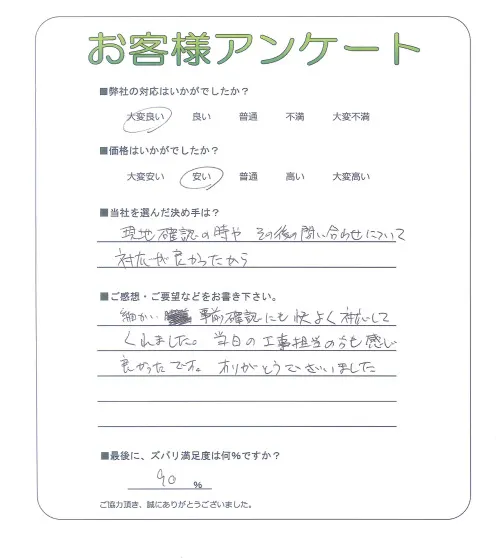 お客様アンケート
■弊社の対応はいかがでしたか？
大変良い 良い 普通 不満 大変不満
■価格はいかがでしたか？
大変安い 安い 普通 高い 大変高い
■当社を選んだ決め手は？
現地確認の時や その後の問い合わせについて
対応が良かったから
■ご感想・ご要望などをお書き下さい。
細かい 事前確認にも快よく対応して
くれました。当日の工事担当の方も感じ
良かったです。ありがとうございました
■最後に、ズバリ満足度は何％ですか？
90 %
ご協力頂き、誠にありがとうございました。